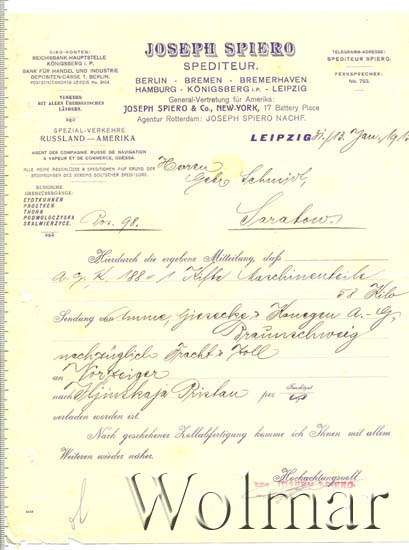 GIRO-KONTEN:
REICHSBANK-HAUPTSTELLE
KÖNIGSBERG i. P.
BANK FÜR HANDEL UND INDUSTRIE
DEPOSITEN-CASSE T. BERLIN.
VERKEHR
MIT ALLEN ÜBERSEEISCHEN
LÄNDERN.
SPEZIAL-VERKEHRE
RUSSLAND — AMERIKA
AGENT DER COMPAGNIE RUSSE DE NAVIGATION
A VAPEUR ET DE COMMERCE, ODESSA.
ALLE MEINE ABSCHLÜSSE & SPEDITIONEN AUF GRUND DER
BEDINGUNGEN DES VEREINS DEUTSCHER SPEDITEURE.
RUSSISCHE
GRENZÜBERGÄNGE:
EYDTKUHNEN
PROSTKEN
THORN
PODWOLOCZYSKA
SKALMIERZYCE.
JOSEPH SPIERO
SPEDITEUR.
BERLIN - BREMEN - BREMERHAVEN
HAMBURG - KÖNIGSBERG i.P. - LEIPZIG
General-Vertretung für Amerika:
JOSEPH SPIERO & Co., NEW-YORK, 17 Battery Place
Agentur Rotterdam: JOSEPH SPIERO NACHF.
TELEGRAMM-ADRESSE:
SPEDITEUR SPIERO.
FERNSPRECHER:
No. 793.
LEIPZIG, 12 Jan. 191
Herren
Gebr. Schmidt,
Saratow.
Pos. 98.
Hierdurch die ergebene Mitteilung, daß
A. G. K. 188 1 Kiste Maschinenteile
58 Kilo
Sendung von Amme, Giesecke & Konegen A.-G.
Braunschweig
nachzüglich Fracht & Zoll
an Vorzeiger
nach Iljinskaja Pristan per Frachtgut
verladen worden ist.
Nach geschehener Zollabfertigung komme ich Ihnen mit allem
Weiteren wieder näher.
Hochachtungsvoll
JOSEPH SPIERO
Wolmar